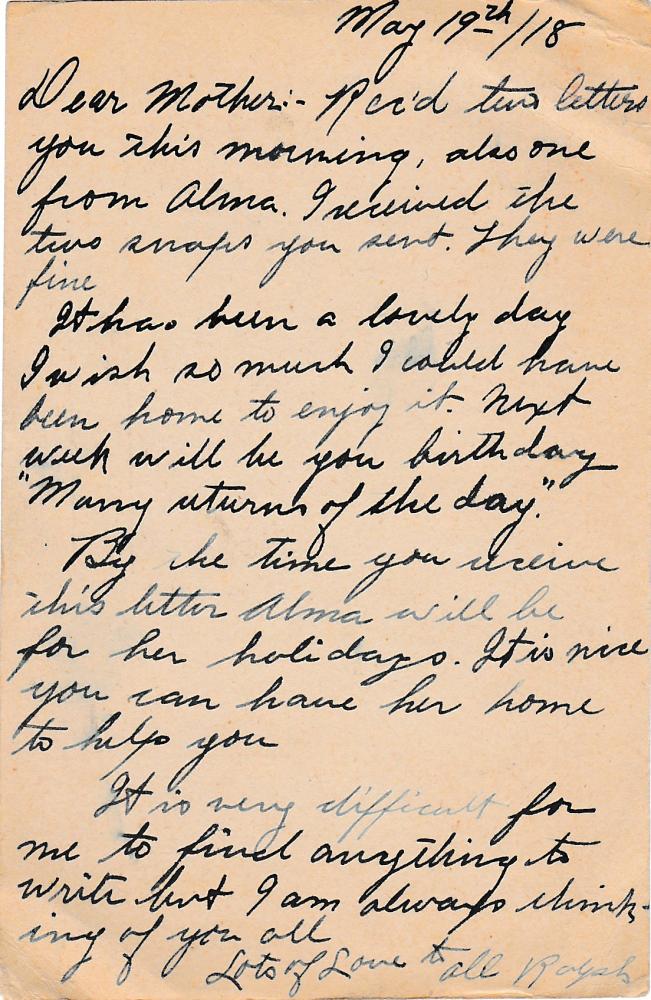 May 19th/18
Dear Mother:- Rec'd two letters
you this morning, also one
from Alma. I received the
two snaps you sent. They were
fine
It has been a lovely day
I wish so much I could have
been home to enjoy it. Next
week will be you birthday
"Many returns of the day".
By the time you receive
this letter Alma will be
for her holidays. It is nice
you can have her home
to help you
It is very difficult for
me to find anything to
write but I am always think-
ing of you all
Lots of Love to all Ralph